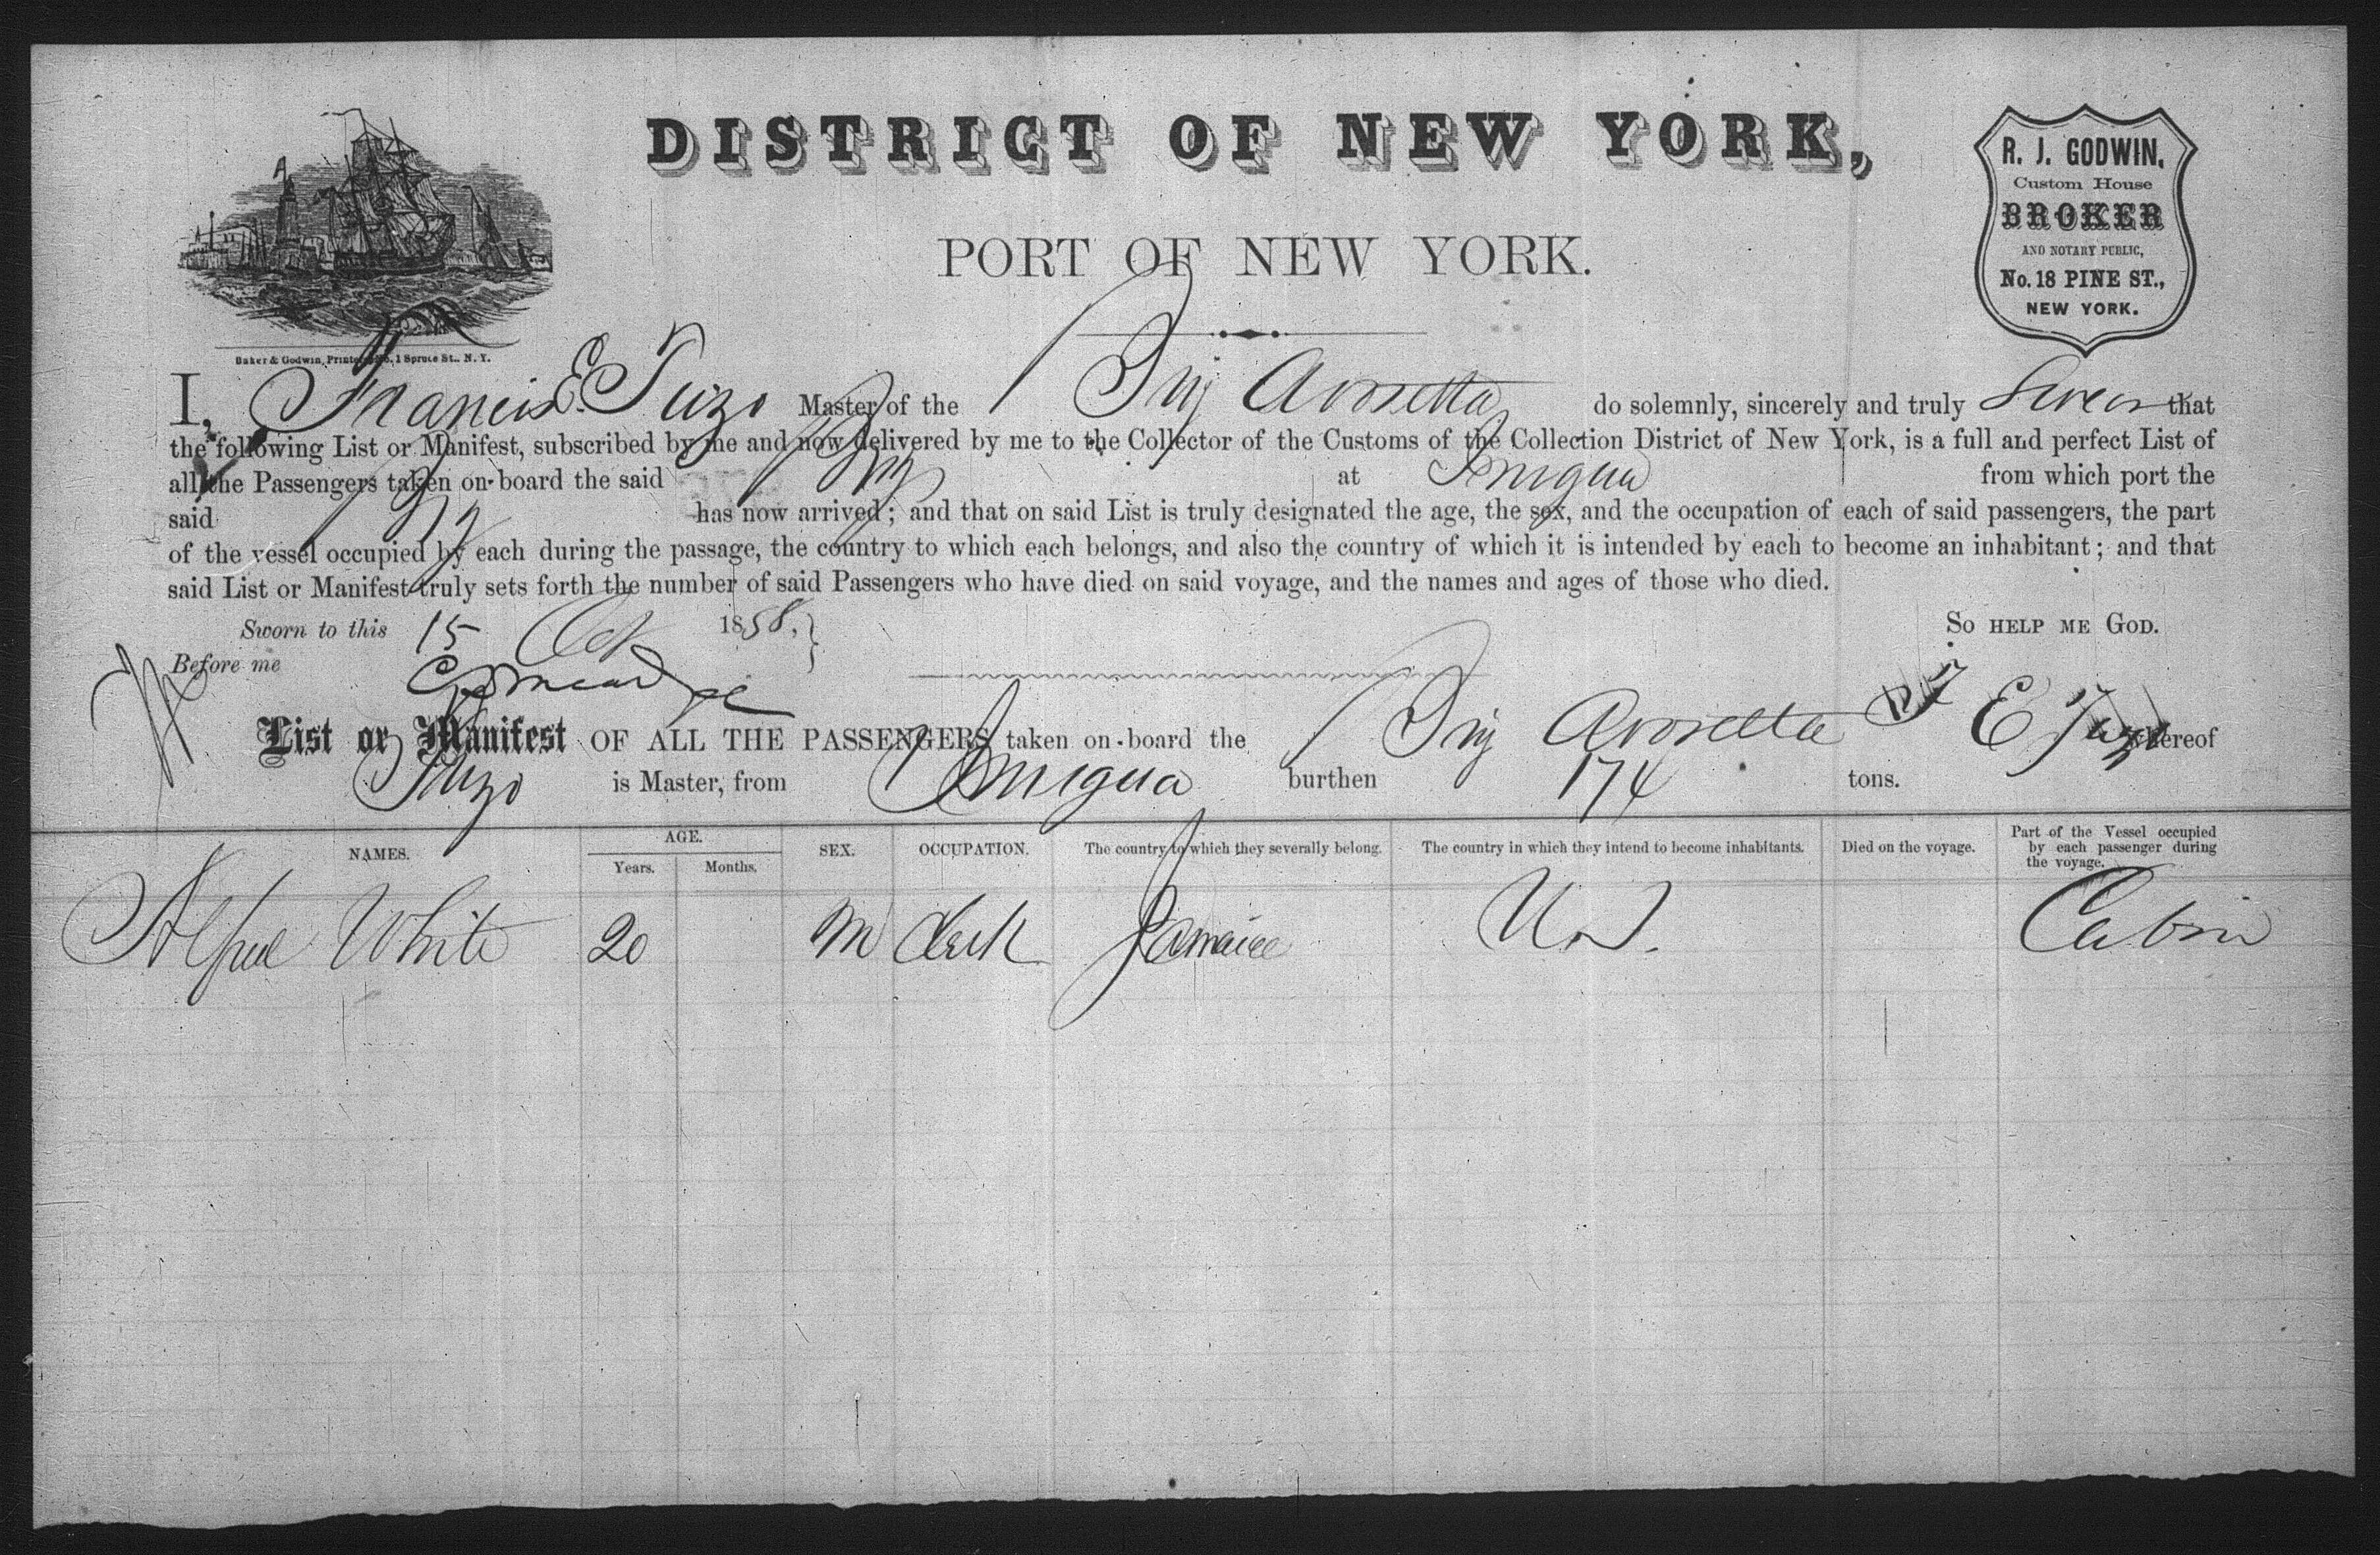 DISTRICT OF NEW YORK,
PORT OF NEW YORK.
R. J. GODWIN,
Custom House
BROKER
AND NOTARY PUBLIC,
No. 18 PINE ST.,
NEW YORK.
Baker & Godwin, Printers, No. 1 Spruce St., N. Y.
I, Francis E. Tuzo Master of the Brig Avosetta do solemnly, sincerely and truly Swear that
the following List or Manifest, subscribed by me and now delivered by me to the Collector of the Customs of the Collection District of New York, is a full and perfect List of
all the Passengers taken on board the said Brig at Inigua from which port the
said Brig has now arrived; and that on said List is truly designated the age, the sex, and the occupation of each of said passengers, the part
of the vessel occupied by each during the passage, the country to which each belongs, and also the country of which it is intended by each to become an inhabitant; and that
said List or Manifest truly sets forth the number of said Passengers who have died on said voyage, and the names and ages of those who died.
Sworn to this 15 Oct 1858, So help me God.
Before me
F E Tuzo
List or Manifest OF ALL THE PASSENGERS taken on board the Brig Avosetta whereof
Tuzo is Master, from Inigua burthen 174 tons.
NAMES. AGE. Years. Months. SEX. OCCUPATION. The country to which they severally belong. The country in which they intend to become inhabitants. Died on the voyage. Part of the Vessel occupied by each passenger during the voyage.
Alfred White 20 M Clerk Jamaica U.S. Cabin